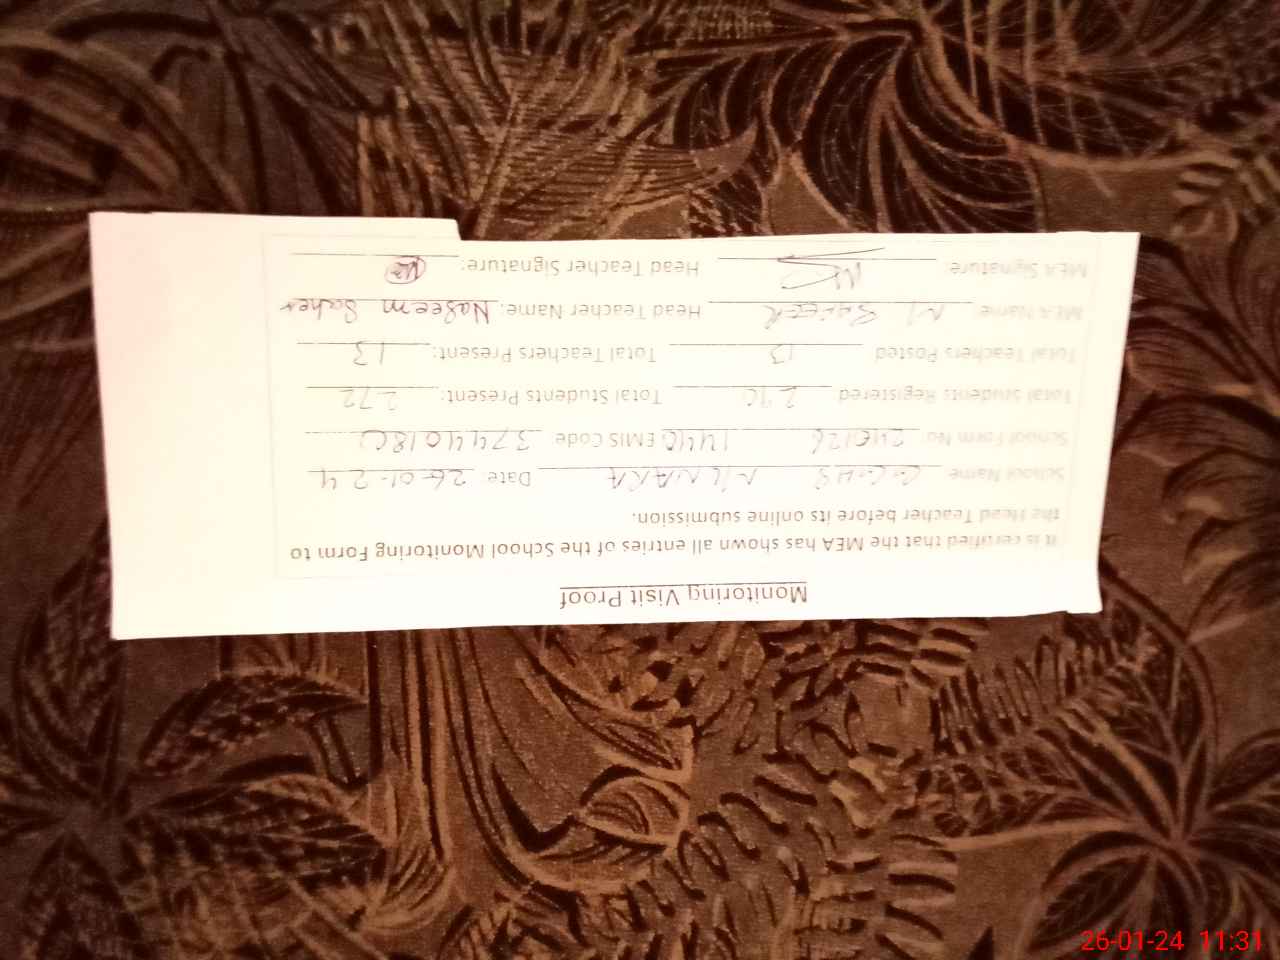 Monitoring Visit Proof
It is certified that the MEA has shown all entries of the School Monitoring Form to
the Head Teacher before its online submission.
School Name: G.G.H.S NILNARA Date: 26-01-24
School Form No: 240126 1440 EMIS Code 37440180
Total Students Registered: 290 Total Students Present: 272
Total Teachers Posted 13 Total Teachers Present: 13
MEA Name: M Head Teacher Name: Naseem Saher
MEA Signature: Head Teacher Signature:
26-01-24 11:31